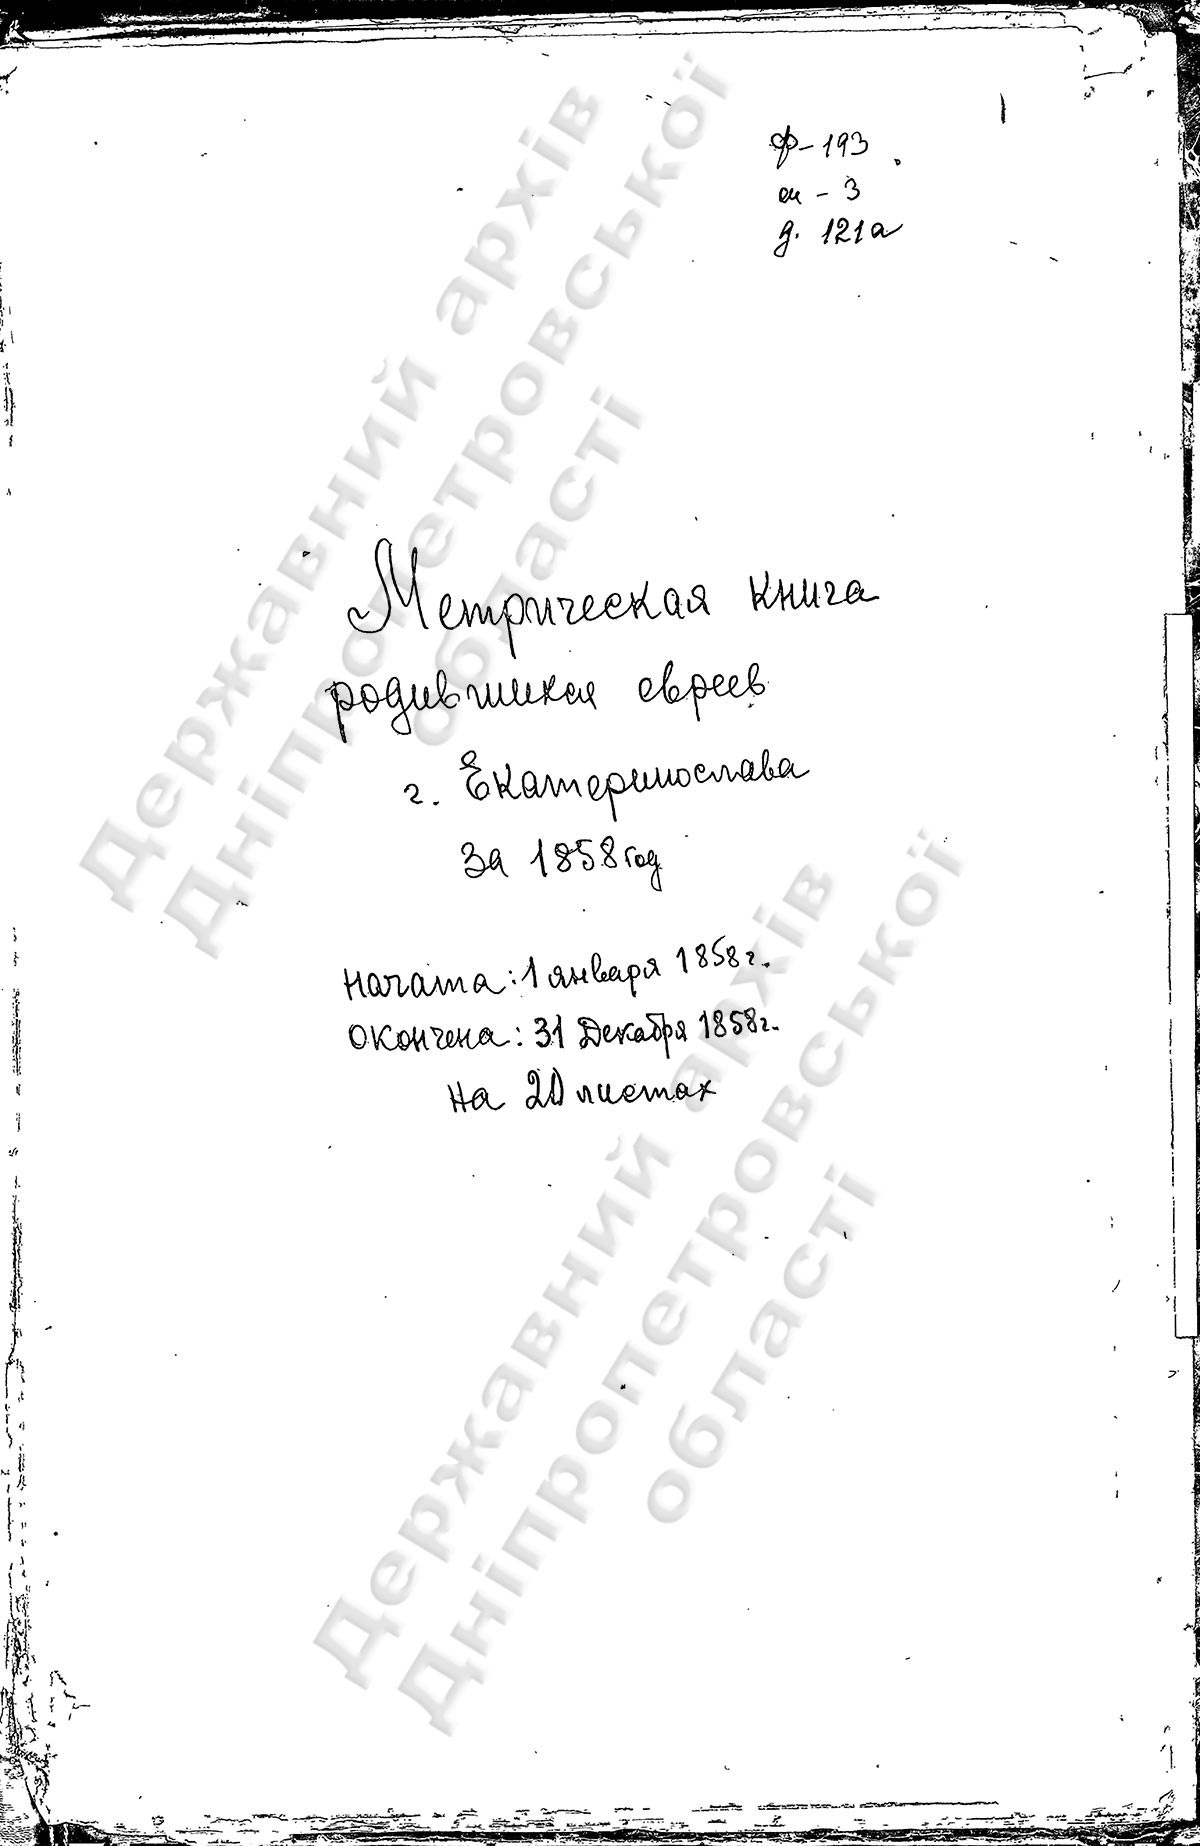 ф-193
оп - 3
д. 121а
Метрическая книга
родившихся евреев
г. Екатеринослава
за 1858 год
Начата: 1 января 1858 г.
Окончена: 31 Декабря 1858 г.
на 20 листах
Державний архів
Дніпропетровської
області
Державний архів
Дніпропетровської
області